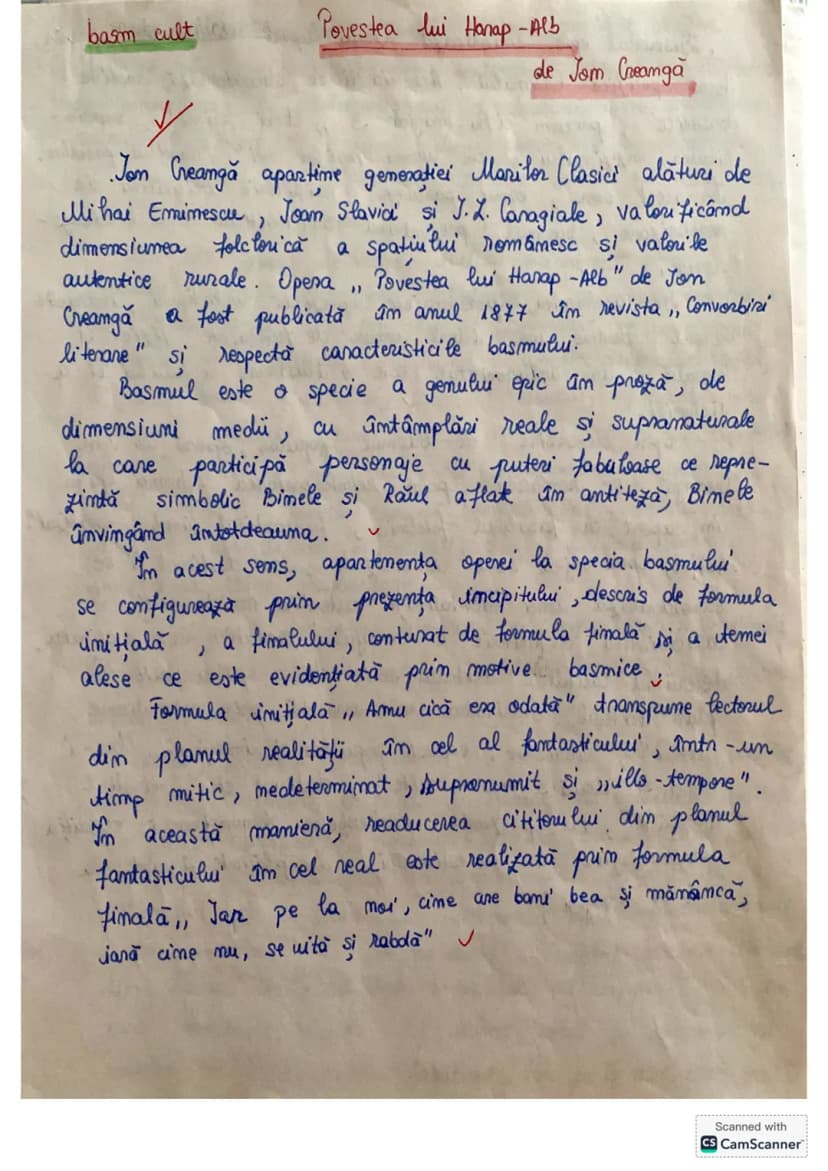 basm cult
Povestea lui Harap-Alb
de Ion Creangă
Ion Creangă aparține generației Marilor Clasici alături de
Mihai Eminescu, Ioan Slavici și I.L. Caragiale, valorificând
dimensiunea folclorică a spațiului românesc și valorile
autentice rurale. Opera „Povestea lui Harap-Alb" de Ion
Creangă a fost publicată în anul 1877 în revista „Convorbiri
literare" și respectă caracteristicile basmului.
Basmul este o specie a genului epic în proză, de
dimensiuni medii, cu întâmplări reale și supranaturale
la care participă personaje cu puteri fabuloase ce repre-
zintă simbolic Binele și Răul aflat în antiteză, Binele
învingând întotdeauna.
În acest sens, apartenența operei la specia basmului
se configurează prin prezența incipitului, descris de formula
inițială, a finalului, conturat de formula finală și a temei
alese ce este evidențiată prin motive basmice.
Formula inițială „Amu cică era odată" transpune lectorul
din planul realității în cel al fantasticului, într-un
timp mitic, nedeterminat, supranumit și „illo-tempore".
În această manieră, readucerea cititorului din planul
fantasticului în cel real este realizată prin formula
finală „Iar pe la noi, cine are bani bea și mănâncă,
iară cine nu, se uită și rabdă"
Scanned with
CS CamScanner